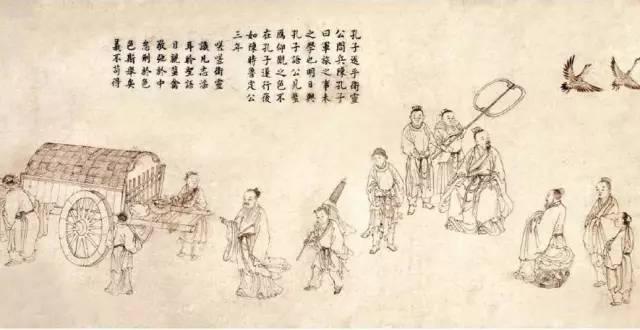 孔子返乎衛靈
公問兵陳孔子
曰軍旅之事未
之學也明日與
孔子語公見蜚
鴈仰觀之色不
在孔子遂行復
如陳時魯定公
三年
嗟嗟衛靈
識凡志滛
耳聆聖語
目覩蜚禽
敬弛於中
怠形於色
色斯舉矣
義不苟得